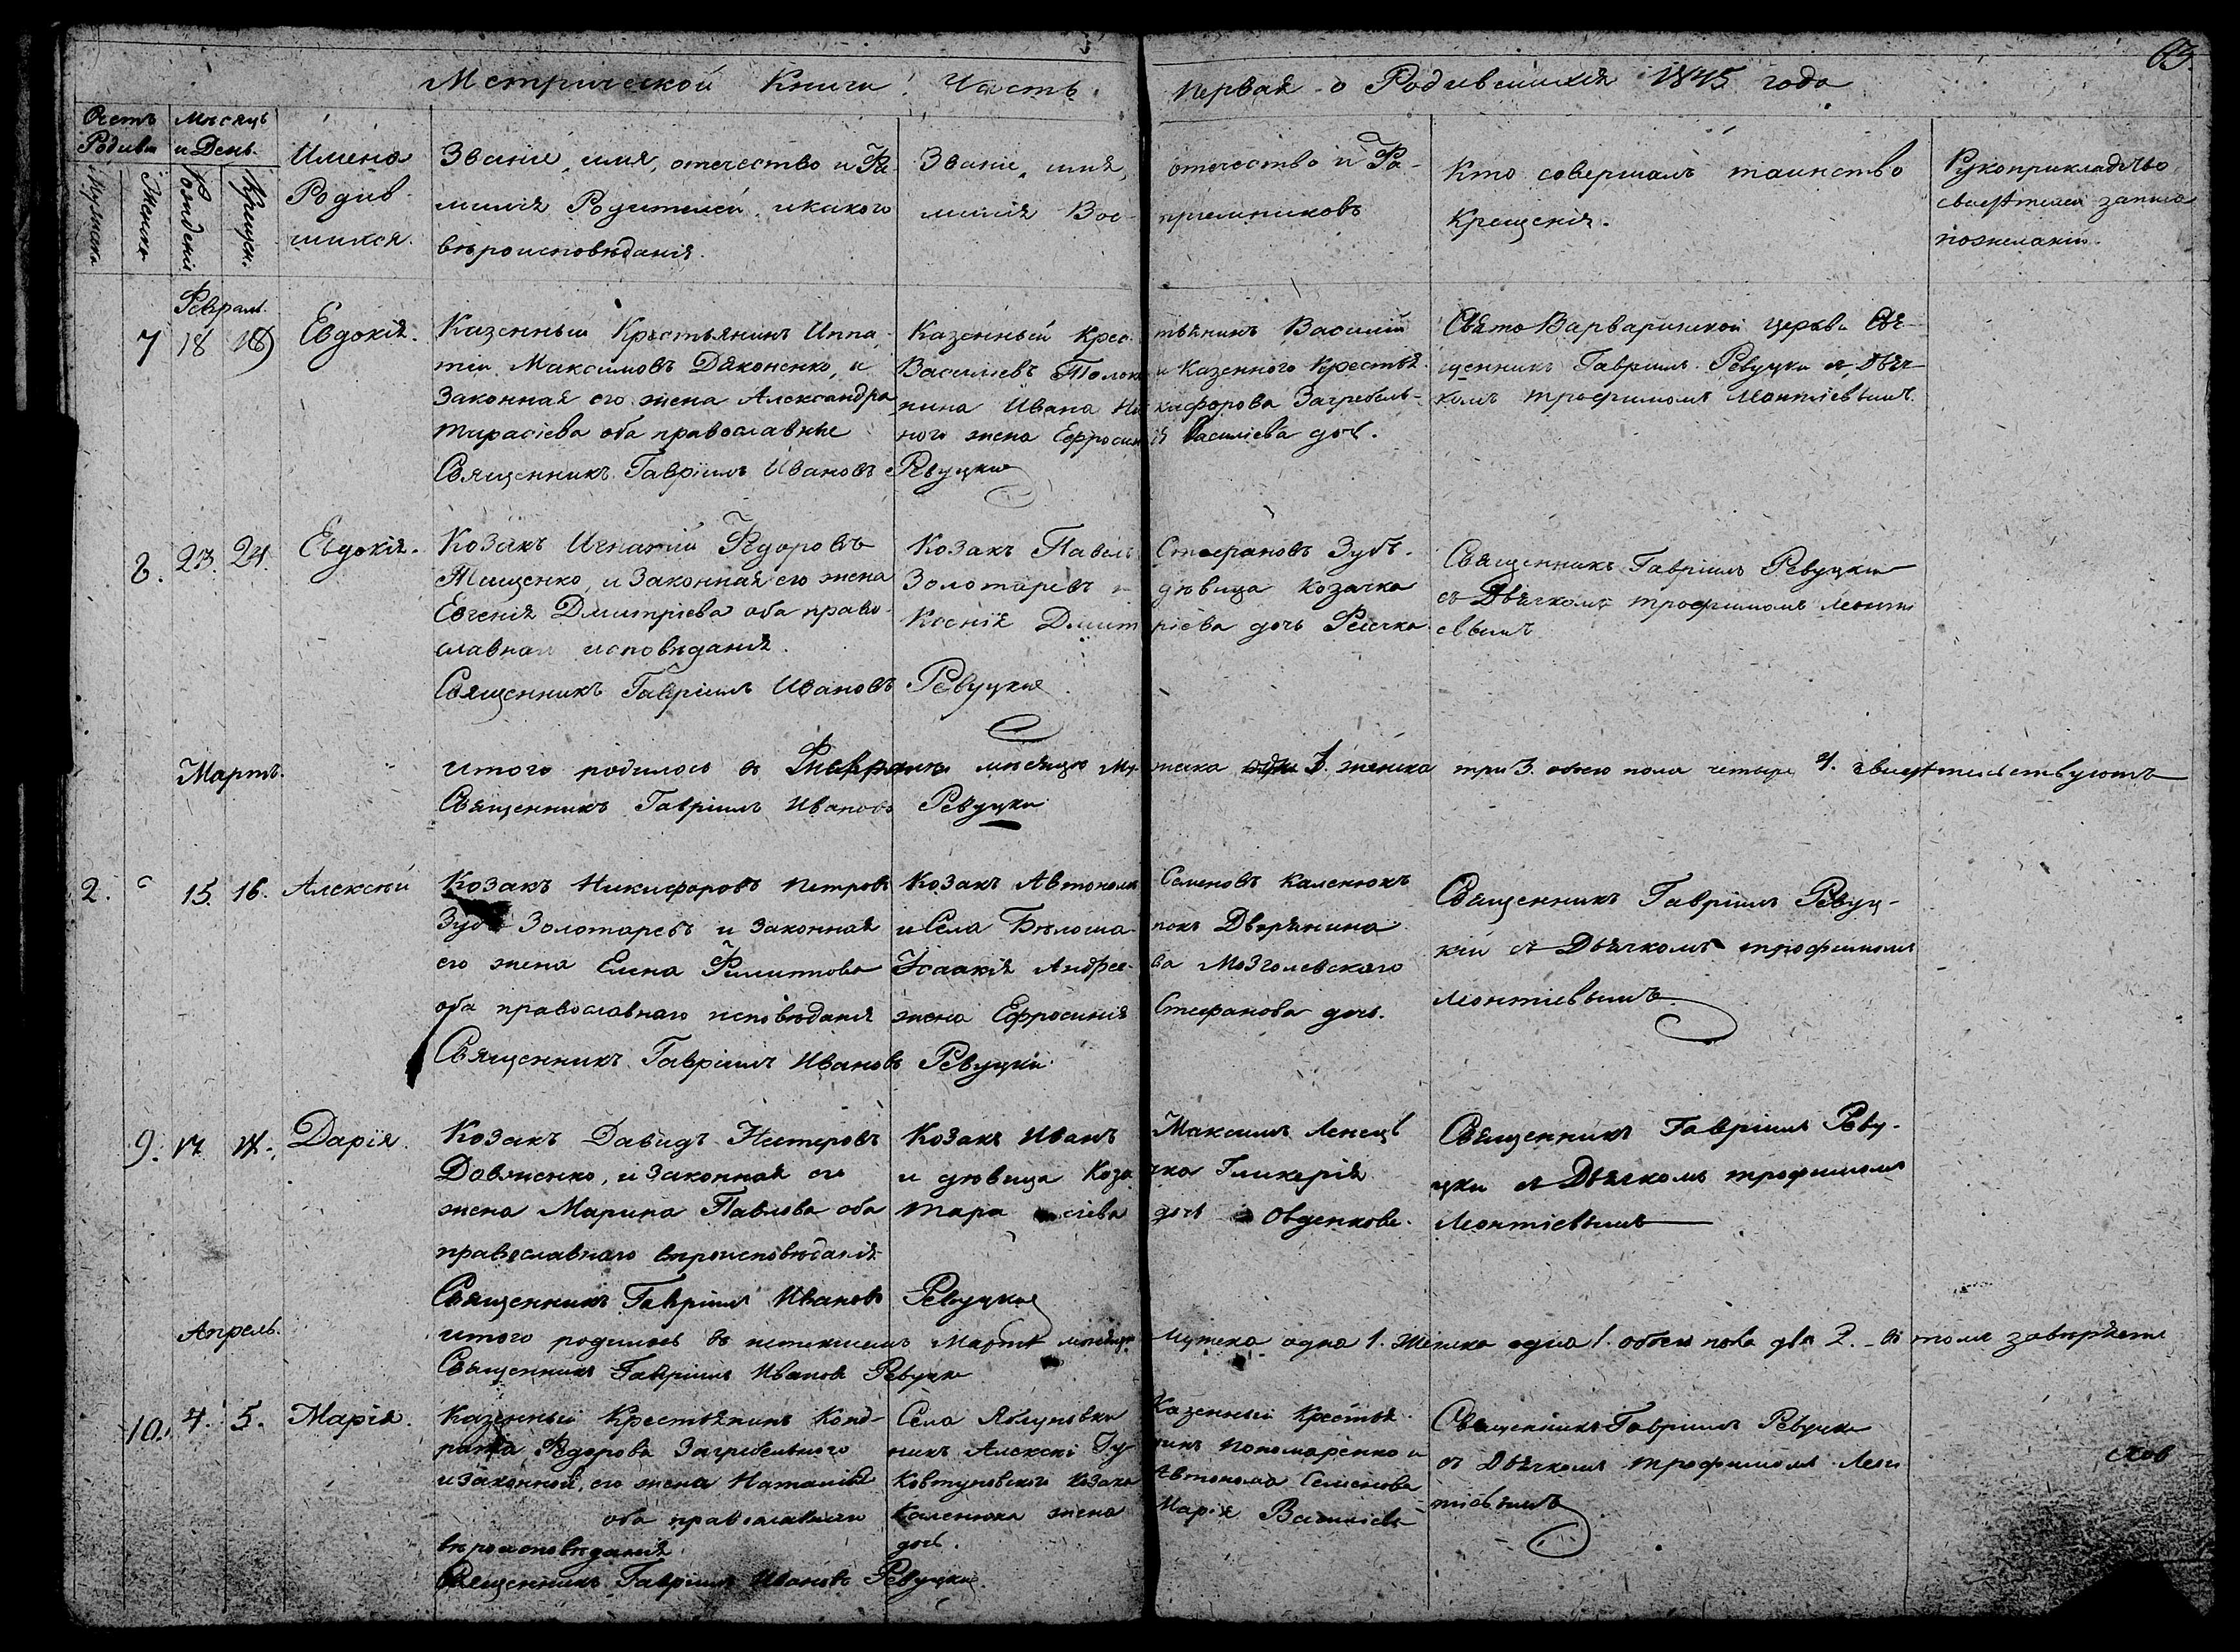 63.
Метрической Книги Часть первая о Родившихся 1845 года
Счетъ Родивш
Мѣсяцъ и День.
Мужска
Женска
Рожденія
Крищен.
Имена
Родив-
шихся.
Званіе, имя, отечество и Фа-
милія Родителей, и какого
вѣроисповѣданія.
Званіе, имя, отечество и Фа-
милія Вос-приемниковъ
Кто совершалъ таинство
Крещенія.
Рукоприкладство
свидѣтелей записа
по желанію.
Февраль.
7 18 18
Евдокія.
Казенный Крестьянинъ Ипа-
тій Максимовъ Дяконенко, и
Законная его жена Александра
Тарасіева оба православные
Священникъ Гавріилъ Ивановъ Ревуцкій
Казенный Крес-тьянинъ Василій
Василіевъ и Казенного Крестья-
нина Ивана Никифорова Загребель-
ного жена Ефросинія Василіева доч.
Свято Варваринской церкви Свя-
щенникъ Гавріилъ Ревуцкій съ Дьяч-
комъ Трофимомъ Леонтіевымъ.
8. 23. 24.
Евдокія.
Козакъ Игнатій Федоровъ
Тищенко, и Законная его жена
Евгенія Дмитріева оба право-
славнаго исповѣданія.
Священникъ Гавріилъ Ивановъ Ревуцкій
Козакъ Павелъ Стефановъ Зубъ-
Золотаревъ и дѣвица Козачка
Ксенія Дмитріева дочь
Священникъ Гавріилъ Ревуцкій
съ Дьячкомъ Трофимомъ Леонті
евымъ
Мартъ.
Итого родилось в Феврале мѣсяцѣ Мужска 1. женска три 3. обоего пола четыре 4. свидѣтельствуютъ
Священникъ Гавріилъ Ивановъ Ревуцкій
2. 15. 16.
Алексѣй
Козакъ Никифоровъ Петровъ
Зубъ Золотаревъ и Законная
его жена Елена Филиппова
оба православнаго исповѣданія
Священникъ Гавріилъ Ивановъ Ревуцкій
Козакъ Автономъ Семеновъ Каленюкъ
и Села Бѣлоша-покъ Дворянина
Ісаакія Андрее-ва Мозголевскаго
жена Ефросинія Стефанова доч.
Священникъ Гавріилъ Ревуц-
кій съ Дьячкомъ Трофимомъ
Леонтіевымъ
9. 17 17.
Дарія
Козакъ Давидъ Нестеровъ
Довженко, и Законная его
жена Марина Павлова оба
православнаго вѣроисповѣданія
Священникъ Гавріилъ Ивановъ Ревуцкій
Козакъ Иванъ Максимъ
и дѣвица Козачка Гликерія
Тарасіева доч Овденкова.
Священникъ Гавріилъ Реву-
цкій съ Дьячкомъ Трофимомъ
Леонтіевымъ
Апрель.
Итого родилось въ истекшемъ Мартѣ мѣсяцѣ Мужска одна 1. Женска одна 1. обоего пола два 2. - въ томъ завѣряетъ
Священникъ Гавріилъ Ивановъ Ревуцкій
10. 4. 5.
Марія.
Казенный Крестьянинъ Конд-
рата Федорова Загребельного
и законной его жена Наталіи
оба православнаго
вѣроисповѣданія
Священникъ Гавріилъ Ивановъ Ревуцкій
Села Яблуновки Казенный Крестья-
никъ Алексѣй Пономаренко и
Ковтуновского Козака Автонома Семенова
Каленюка жена Марія Василіева
доч.
Священникъ Гавріилъ Ревуцкій
съ Дьячкомъ Трофимомъ Леон
тіевымъ